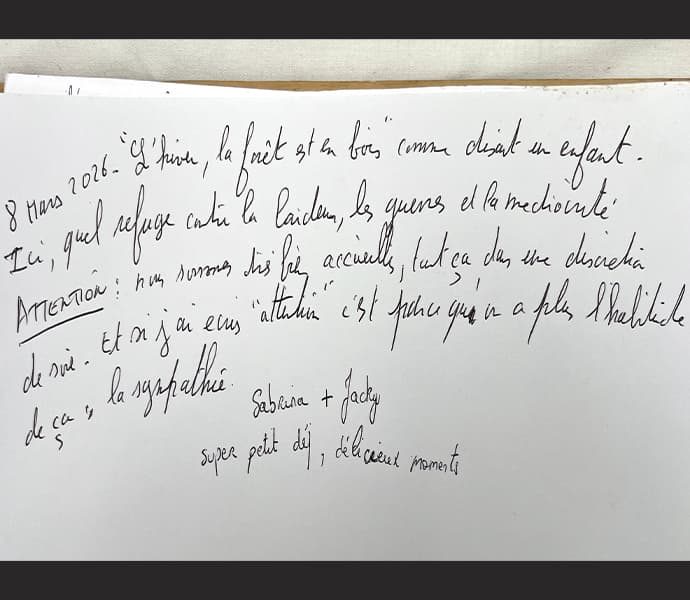 8 Mars 2026 - "L'hiver, la forêt est en bois" comme disait un enfant.
Ici, quel refuge contre la laideur, les guerres et la mediocrité
ATTENTION : nous sommes très bien accueillis, tout ça dans une discretion
de soie. Et si j'ai ecris "attention" c'est parce qu'on a plus l'habitude
de ça, la sympathie.
Sabrina + Jacky
super petit déj, délicieux moments